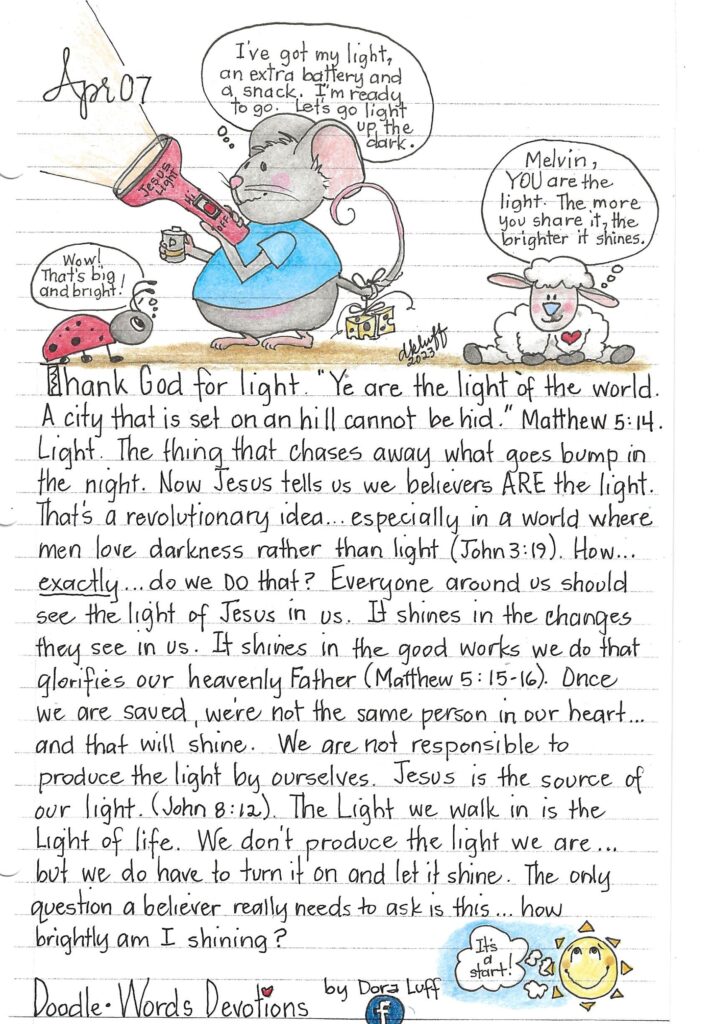 Apr 07
I've got my light,
an extra battery and
a snack. I'm ready
to go. Let's go light
up the
dark.
Jesus
Light
Hi
OFF
D
Wow!
That's big
and bright!
Melvin,
YOU are the
light. The more
you share it, the
brighter it shines.
dkluff
2023
Thank God for light. "Ye are the light of the world.
A city that is set on an hill cannot be hid." Matthew 5:14.
Light. The thing that chases away what goes bump in
the night. Now Jesus tells us we believers ARE the light.
That's a revolutionary idea... especially in a world where
men love darkness rather than light (John 3:19). How...
exactly... do we DO that? Everyone around us should
see the light of Jesus in us. It shines in the changes
they see in us. It shines in the good works we do that
glorifies our heavenly Father (Matthew 5:15-16). Once
we are saved, we're not the same person in our heart...
and that will shine. We are not responsible to
produce the light by ourselves. Jesus is the source of
our light. (John 8:12). The Light we walk in is the
Light of life. We don't produce the light we are...
but we do have to turn it on and let it shine. The only
question a believer really needs to ask is this... how
brightly am I shining?
It's
a
start!
Doodle • Words Devotions by Dora Luff
f